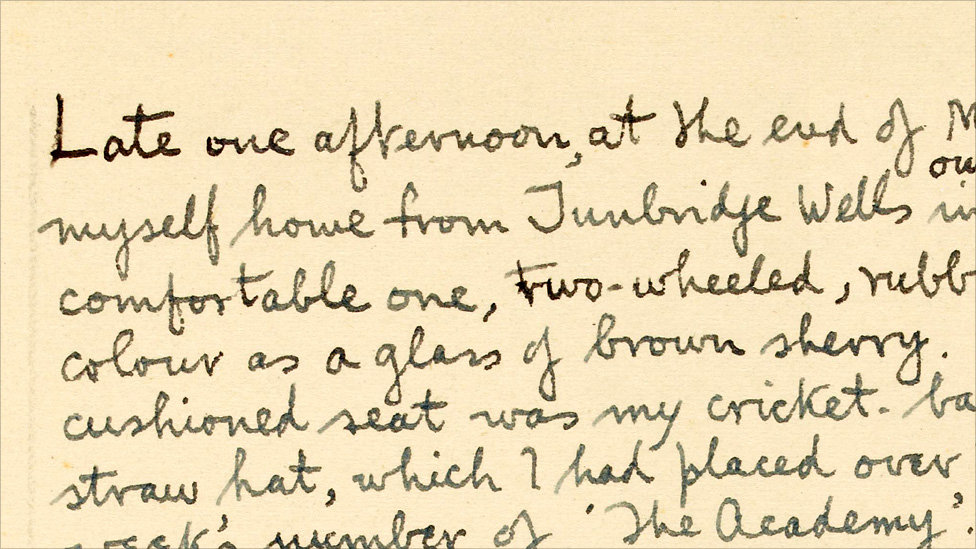 Late one afternoon, at the end of
myself home from Tunbridge Wells in
comfortable one, two-wheeled, rubb
colour as a glass of brown sherry.
cushioned seat was my cricket-ba
straw hat, which I had placed over
week's number of 'The Academy'.